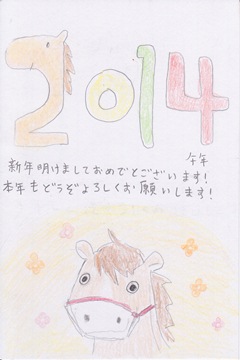 2014
午年
新年明けましておめでとございます!
本年もどうぞよろしくお願いします!